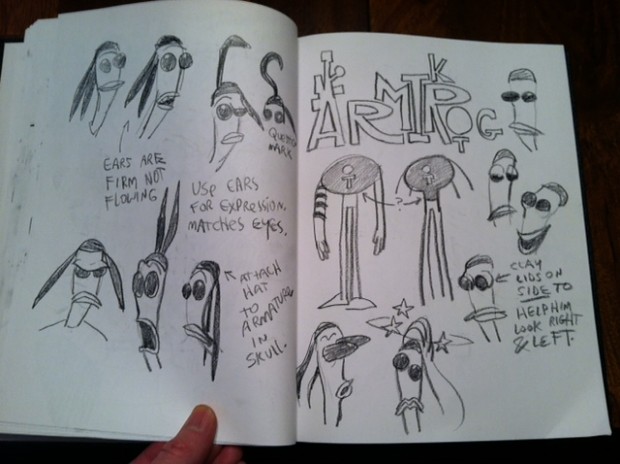 EARS ARE
FIRM NOT
FLOWING
QUESTION
MARK
USE EARS
FOR EXPRESSION.
MATCHES EYES.
ATTACH
HAT
TO
ARMATURE
IN
SKULL.
ARMIKROG
?
CLAY
LIDS ON
SIDE TO
HELP HIM
LOOK RIGHT
& LEFT.